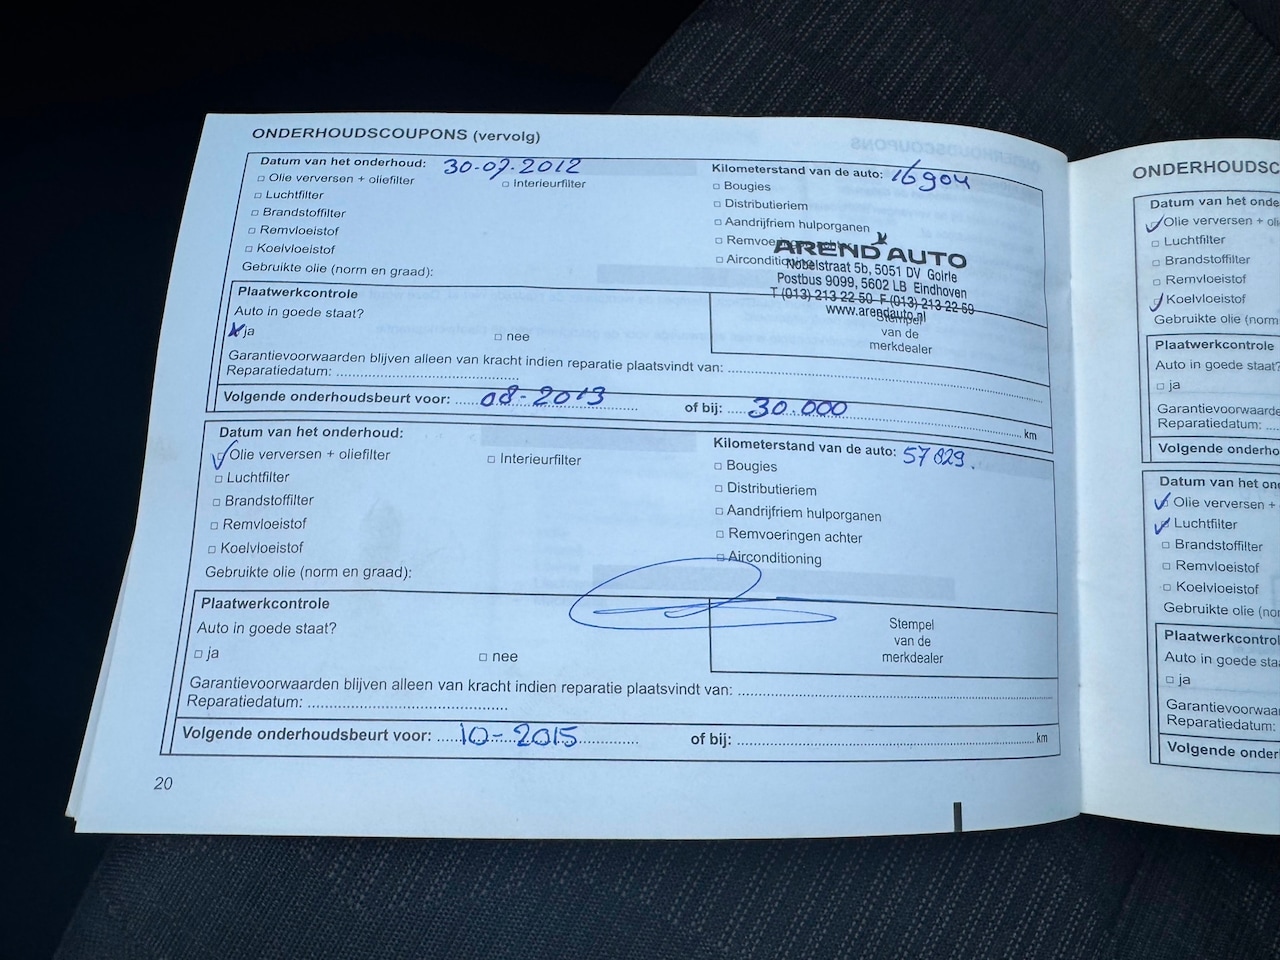 ONDERHOUDSCOUPONS (vervolg)
Datum van het onderhoud: 30-07-2012
Kilometerstand van de auto: 16904
Olie verversen + oliefilter
Interieurfilter
Bougies
Luchtfilter
Distributieriem
Brandstoffilter
Aandrijfriem hulporganen
Remvloeistof
Remvoeringen achter
Koelvloeistof
Airconditioning
Gebruikte olie (norm en graad):
AREND AUTO
Nobelstraat 5b, 5051 DV Goirle
Postbus 9099, 5602 LB Eindhoven
T (013) 213 22 50 F (013) 213 22 59
www.arendauto.nl
Plaatwerkcontrole
Auto in goede staat?
ja
nee
Stempel
van de
merkdealer
Garantievoorwaarden blijven alleen van kracht indien reparatie plaatsvindt van:
Reparatiedatum:
Volgende onderhoudsbeurt voor: 08-2013 of bij: 30.000 km
Datum van het onderhoud:
Kilometerstand van de auto: 57829.
Olie verversen + oliefilter
Interieurfilter
Bougies
Luchtfilter
Distributieriem
Brandstoffilter
Aandrijfriem hulporganen
Remvloeistof
Remvoeringen achter
Koelvloeistof
Airconditioning
Gebruikte olie (norm en graad):
Plaatwerkcontrole
Auto in goede staat?
ja
nee
Stempel
van de
merkdealer
Garantievoorwaarden blijven alleen van kracht indien reparatie plaatsvindt van:
Reparatiedatum:
Volgende onderhoudsbeurt voor: 10-2015 of bij: km
20
ONDERHOUDSC
Datum van het onde
Olie verversen + oli
Luchtfilter
Brandstoffilter
Remvloeistof
Koelvloeistof
Gebruikte olie (norm
Plaatwerkcontrole
Auto in goede staat?
ja
Garantievoorwaarde
Reparatiedatum:
Volgende onderho
Datum van het ond
Olie verversen +
Luchtfilter
Brandstoffilter
Remvloeistof
Koelvloeistof
Gebruikte olie (no
Plaatwerkcontrol
Auto in goede sta
ja
Garantievoorwaa
Reparatiedatum:
Volgende onder